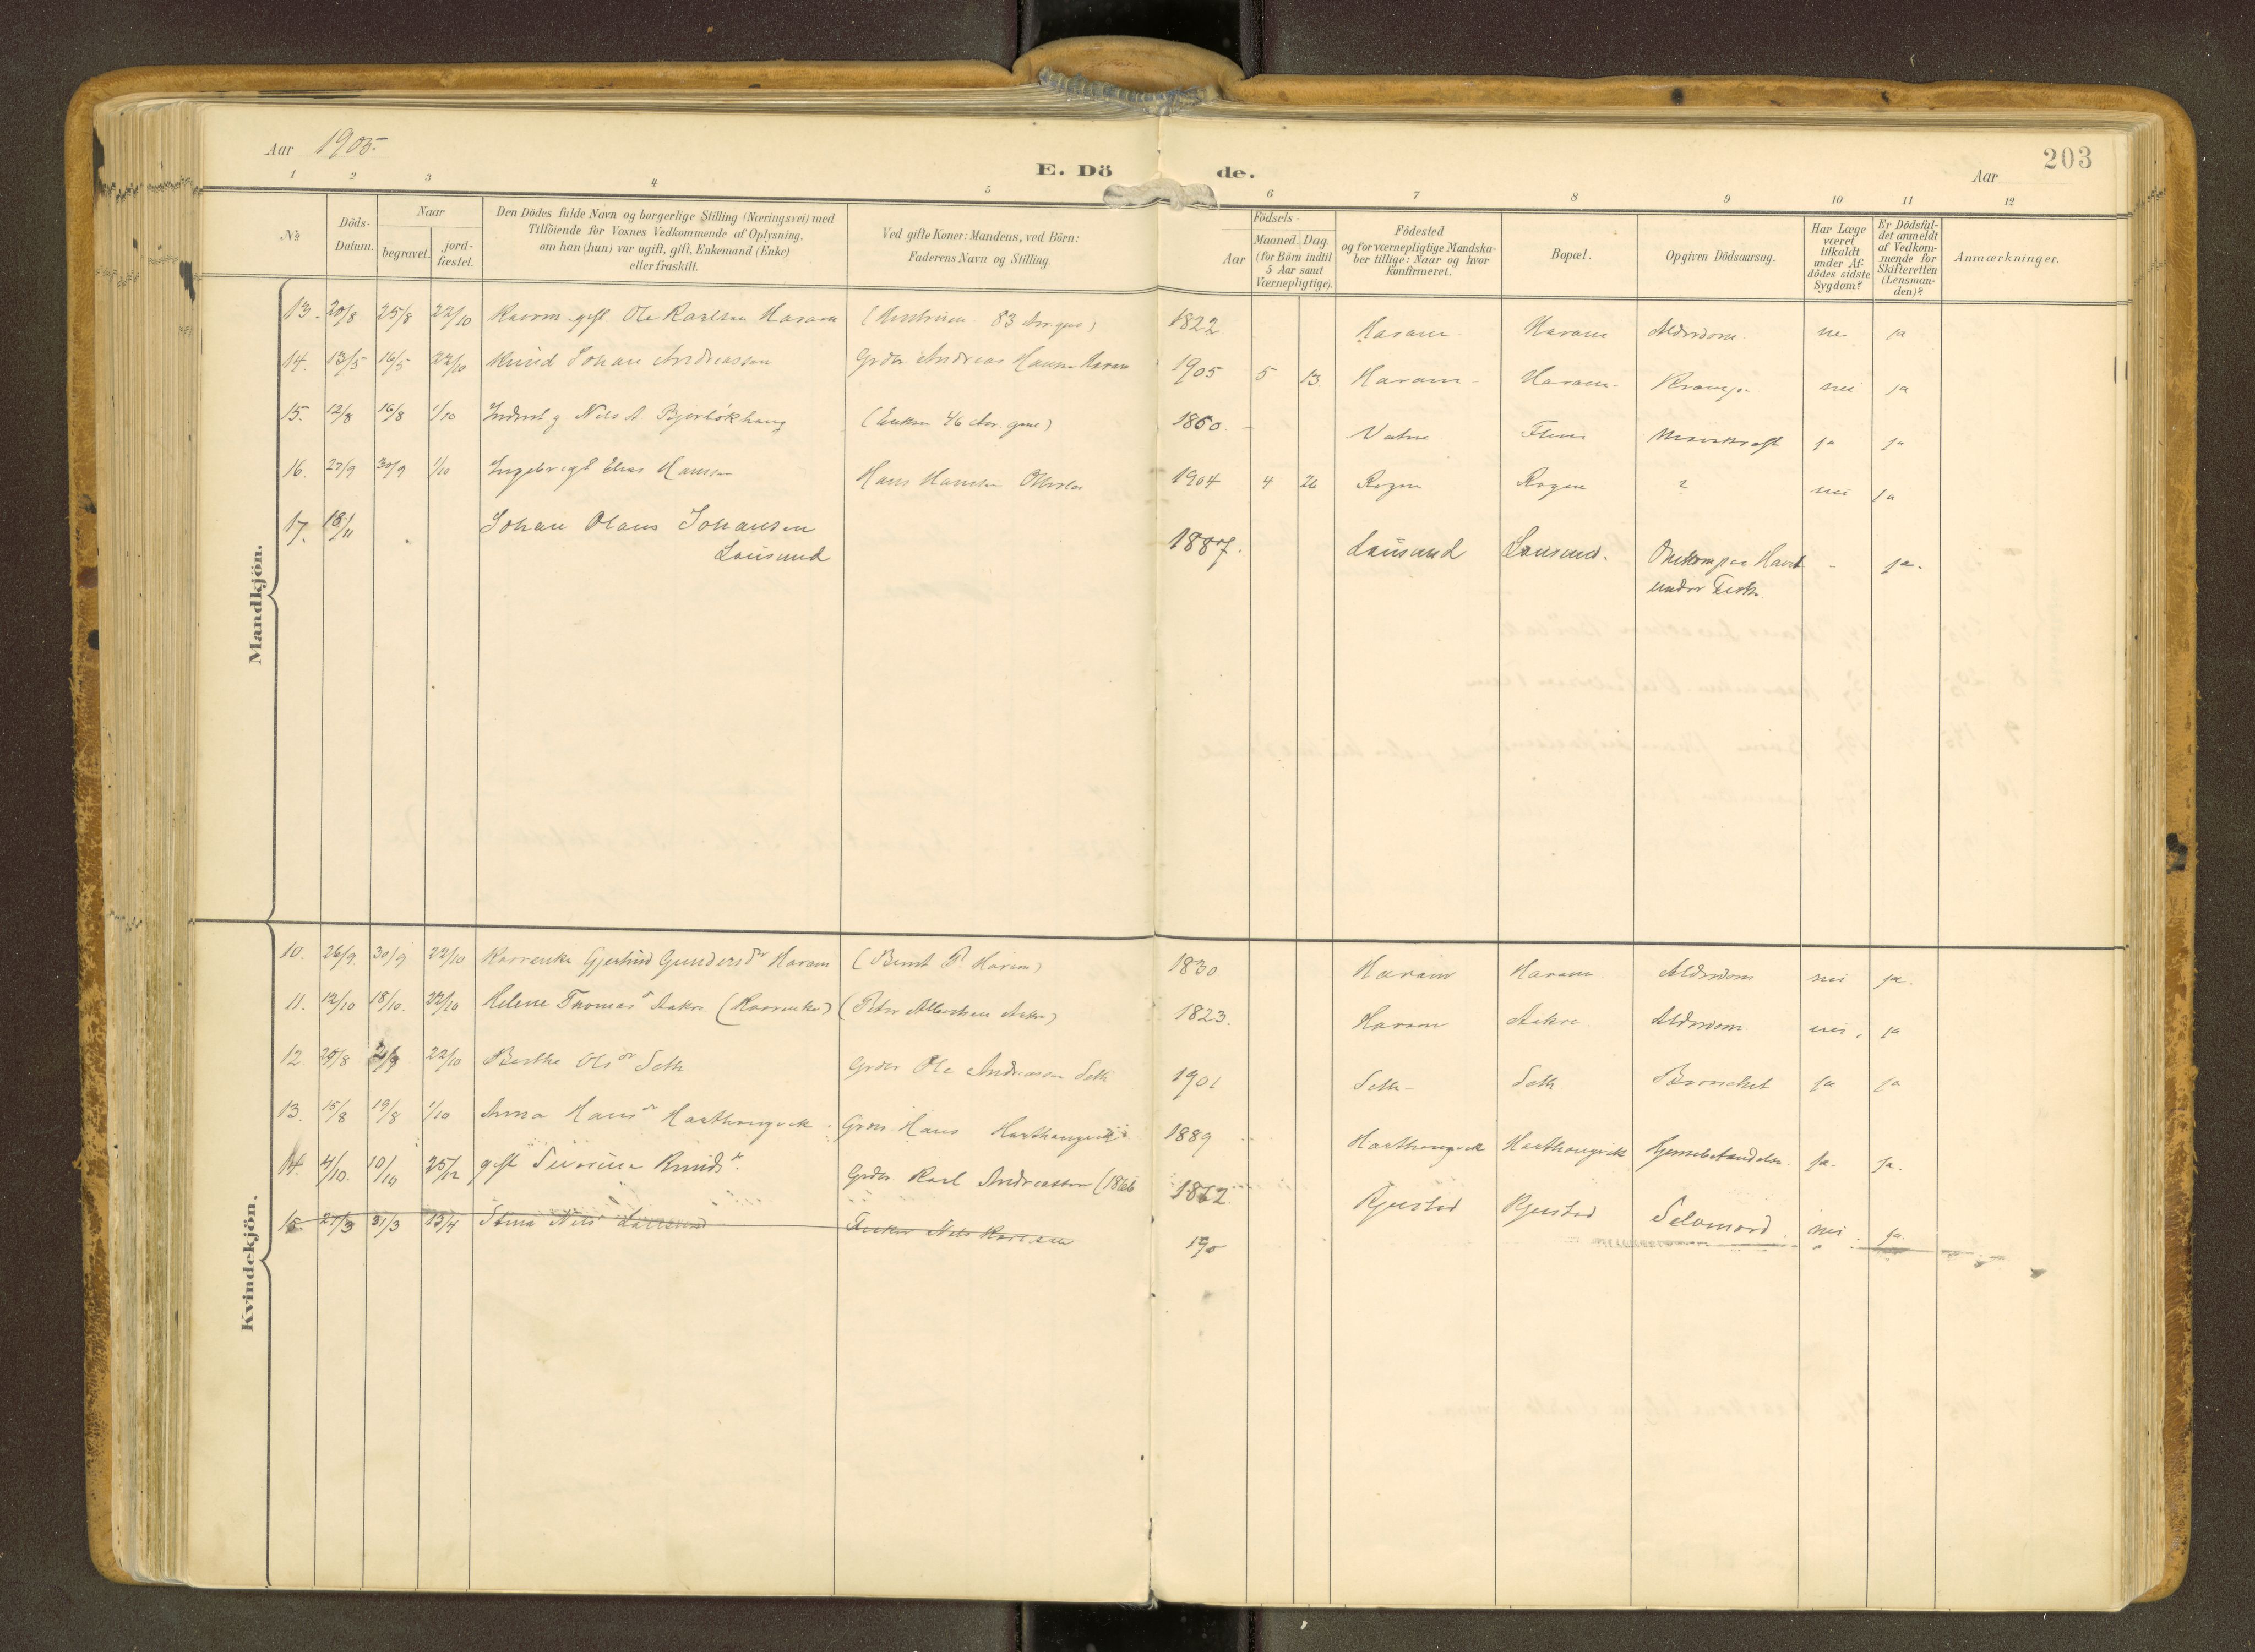 Aar 1905.
203
E. Döde.
Aar
1 2 3 4 5 6 7 8 9 10 11 12
№
Döds-Datum.
Naar
begravet.
jord-fæstet.
Den Dödes fulde Navn og borgerlige Stilling (Næringsvei) med
Tilföiende for Voxnes Vedkommende af Oplysning,
om han (hun) var ugift, gift, Enkemand (Enke)
eller fraskilt.
Ved gifte Koner: Mandens, ved Börn:
Faderens Navn og Stilling.
Födsels-
Aar
Maaned. Dag.
(for Börn indtil
5 Aar samt
Værnepligtige).
Födested
og for værnepligtige Mandska-
ber tillige: Naar og hvor
konfirmeret.
Bopæl.
Opgiven Dödsaarsag.
Har Læge
været
tilkaldt
under Af-
dödes sidste
Sygdom?
Er Dödsfal-
det anmeldt
af Vedkom-
mende for
Skifteretten
(Lensman-
den)?
Anmærkninger.
Mandkjön.
13. 20/8 25/8 22/10 gift Ole Karlsen Haram ( 83 Aar ) 1822 Haram Haram Alderdom ne ja
14. 13/5 16/5 22/10 Knud Johan Andreassen Grdbr Andreas Hansen Haram 1905 5 13. Haram Haram Krampe nei ja
15. 12/8 16/8 1/10 Nils A (Enken 46 Aar ) 1860. Vatne ja ja
16. 27/9 30/9 1/10 Ingebrigt Elias Hansen Hans Hansen 1904 4 26 Rogne Rogne ? nei ja
17. 18/11 Johan Olaus Johansen
Lausund 1887. Lausund Lausund. Omkom paa Havet
under Fiske. - ja.
Kvindekjön.
10. 26/9. 30/9 22/10 Kaarenke Gjertrud Gundersdr Haram (Bernt P. Haram) 1830 Haram Haram Alderdom nei ja.
11. 12/10 18/10. 22/10 Helene Thomasdr Aakre (Kaarenke) (Peter Aakre) 1823. Haram Aakre Alderdom nei. ja
12 29/8 2/9 22/10 Berthe Olsdr Seth Grdbr Ole Andreassen Seth 1901 Seth Seth Bronchit ja ja
13. 15/8 19/8 1/10 Anna Hansdr Hans 1889 ja. ja.
14. 4/10. 10/10 25/12 gift Severine Knudsdr. Grdbr. Karl Andreassen (1866 1862 Kjerstad Kjerstad Selvmord. nei. ja.
15. 27/3 31/3 13/4 Stina Nils Lausund Fisker Nils Karlsen 190